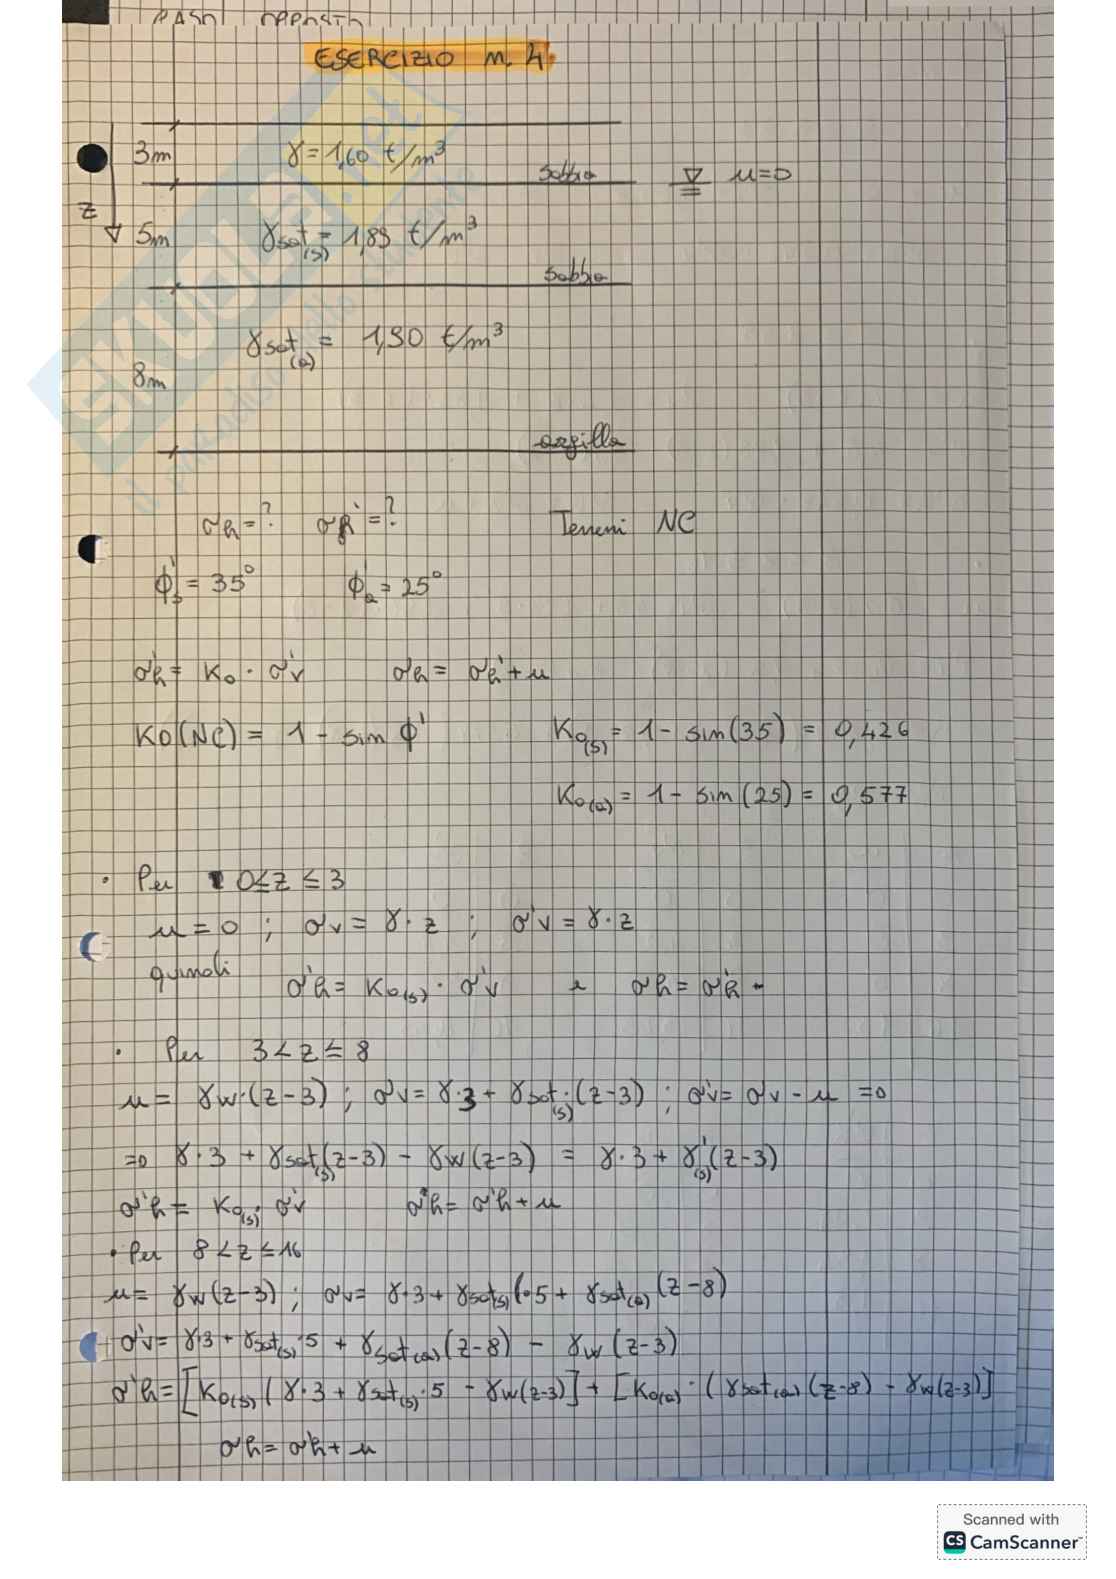 ESERCIZIO n. 4
3m γ = 1,60 t/m³ sabbia u=0
z 5m γsat(s) = 1,89 t/m³
sabbia
γsat(a) = 1,90 t/m³
8m
argilla
σh = ? σh' = ? Terreni NC
ϕ's = 35° ϕ'a = 25°
σ'h = K0 · σ'v σh = σh' + u
K0(NC) = 1 - sin ϕ' K0(s) = 1 - sin(35) = 0,426
K0(a) = 1 - sin(25) = 0,577
• Per 0≤z≤3
u = 0 ; σv = γ·z ; σ'v = γ·z
quindi σ'h = K0(s) · σ'v e σh = σ'h
• Per 3<z≤8
u = γw·(z-3) ; σv = γ·3 + γsat(s)·(z-3) ; σ'v = σv - u =>
=> γ·3 + γsat(s)(z-3) - γw(z-3) = γ·3 + γ'(s)(z-3)
σ'h = K0(s)· σ'v σh = σ'h + u
• Per 8<z≤16
u = γw(z-3) ; σv = γ·3 + γsat(s)(·5 + γsat(a)(z-8)
σ'v = γ·3 + γsat(s)·5 + γsat(a)(z-8) - γw(z-3)
σ'h = [K0(s)(γ·3 + γsat(s)·5 - γw(z-3)] + [K0(a)·(γsat(a)(z-8) - γw(z-3)]
σh = σ'h + u
SKUOLA.net
il paradiso dello studente
Scanned with
CS CamScanner